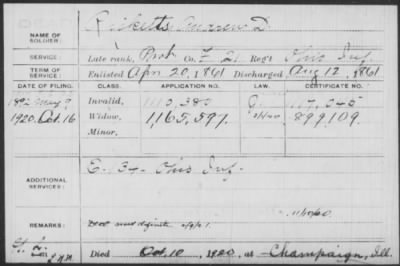 Ricketts, Andrew D.
NAME OF SOLDIER:
SERVICE: Late rank, Co. F 21 Reg't Ohio Inf.
TERM OF SERVICE: Enlisted Apr 20, 1861 Discharged Aug 12, 1861
DATE OF FILING. CLASS. APPLICATION NO. LAW. CERTIFICATE NO.
1892 May 9 Invalid, 1,110,380
1920 Oct. 16 Widow, 1,165,597 899,109
Minor,
ADDITIONAL SERVICES: E. Ohio Inf.
REMARKS:
Died Oct, 10, 1920, at Champaign, Ill.